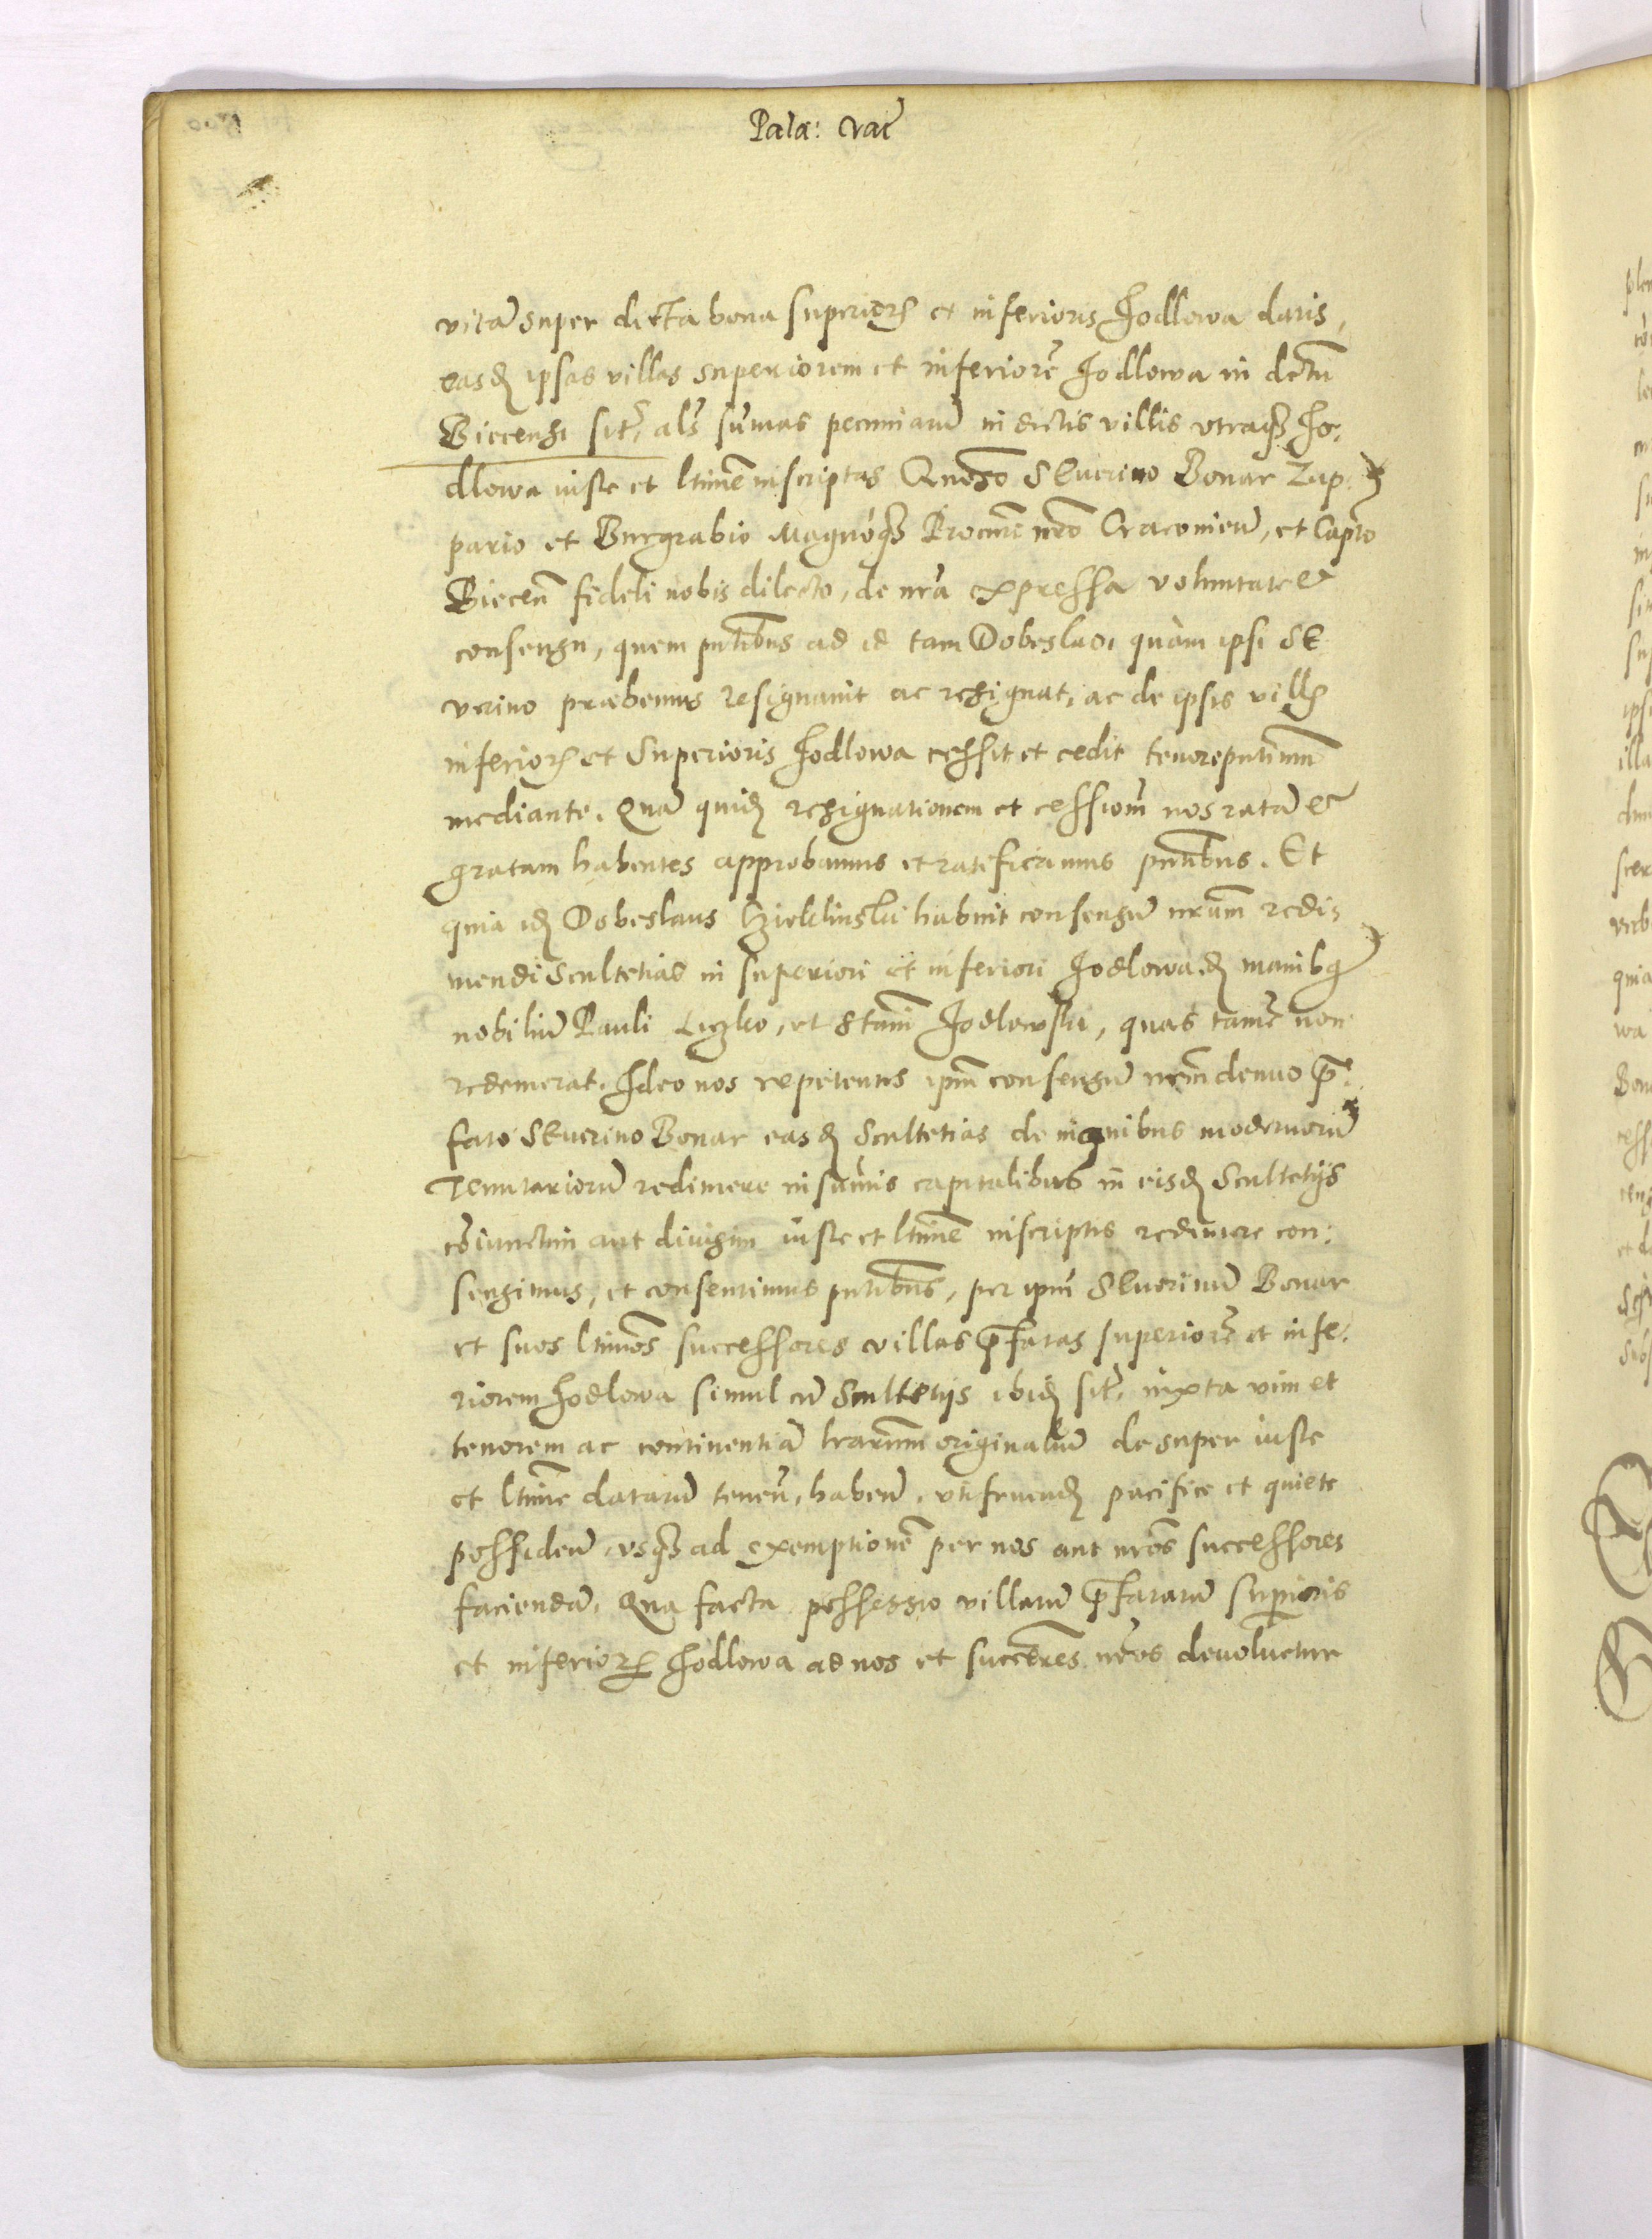 Pala: crac̃
vitã super dicta bona superiorς et inferioris Jodlowa datis,
easdꝫ ipsas villas superiorem et inferiorẽ Jodlowa in dctũ
Biecensi sit̃, al̃s sũmas pecuniarũ in dictis villis vtraqꝫ Jo⸗
dlowa iuste et ltimẽ inscriptas Gnõso Seuerino Bonar Zup⸗
pario et Burgrabio Magnoqꝫ Procurĩ nr̃o Cracovieñ, et Capto
Biecen̄ fideli nobis dilecto, de nr̃a expressa voluntate et
consensu, quem pn̄tibus ad id tam Dobeslao, quàm ipsi Se
verino præbemus resignauit ac resignat, ac de ipsis villς
inferiorς et Superioris Jodlowa cessit et cedit tenore pn̄tium
mediante. Quã quidꝫ resignationem et cessionẽ nos ratã et
gratam habentes approbamus et ratificamus pn̄tibus. Et
quia idꝫ Dobeslaus Czieklinski habuit consensũ nr̄um redi⸗
mendi Scultetias in superiori et inferiori Jodlowa dꝫ manibꝫ
nobiliũ Pauli Liczko, et Stanī Jodlowski, quas tamẽ non
redemerat. Ideo nos repetentes ipm̄ consensũ nr̄m denuo p̄⸗
fato Seuerino Bonar easdꝫ Scultetias de manibus modernorũ
Tenutariorũ redimere in sũmis capitalibus in eisdꝫ Scultetijs
cõiunctim aut diuisim iuste et ltimẽ inscriptis redimere con⸗
sensimus, et consentimus pn̄tibus, per ipm̃ Seuerinũ Bonar
et suos ltimõs successores villas p̄fatas superiorẽ et infe⸗
riorem Jodlowa simul cũ Scultetijs ibidꝫ sit̃, iuxta vim et
tenorem ac continentiã lr̃arum originaliũ desuper iuste
et ltimẽ datarũ teneñ, habeñ, vtifruendꝫ pacifice et quiete
possideñ, vsqꝫ ad exemptionẽ per nos aut nr̃os successores
faciendã, Qua facta possessio villarũ p̄fatarũ superioris
et inferiorς Jodlowa ad nos et succeres nr̃os deuoluetur